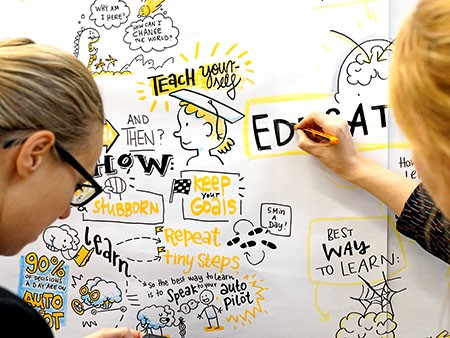 WHY AM
I HERE?
HOW CAN I
CHANGE
THE WORLD?
TEACH YOUR-
SELF
EDUCAT
AND
THEN?
HOW:
STUBBORN
KEEP
YOUR
GOALS
5 MIN
A DAY!
Learn
REPEAT
TINY STEPS
BEST
WAY
TO LEARN:
90%
OF DECISIONS
A DAY ARE ON
AUTO
PILOT
SO THE BEST WAY TO LEARN
IS TO SPEAK TO YOUR AUTO
PILOT
HOW